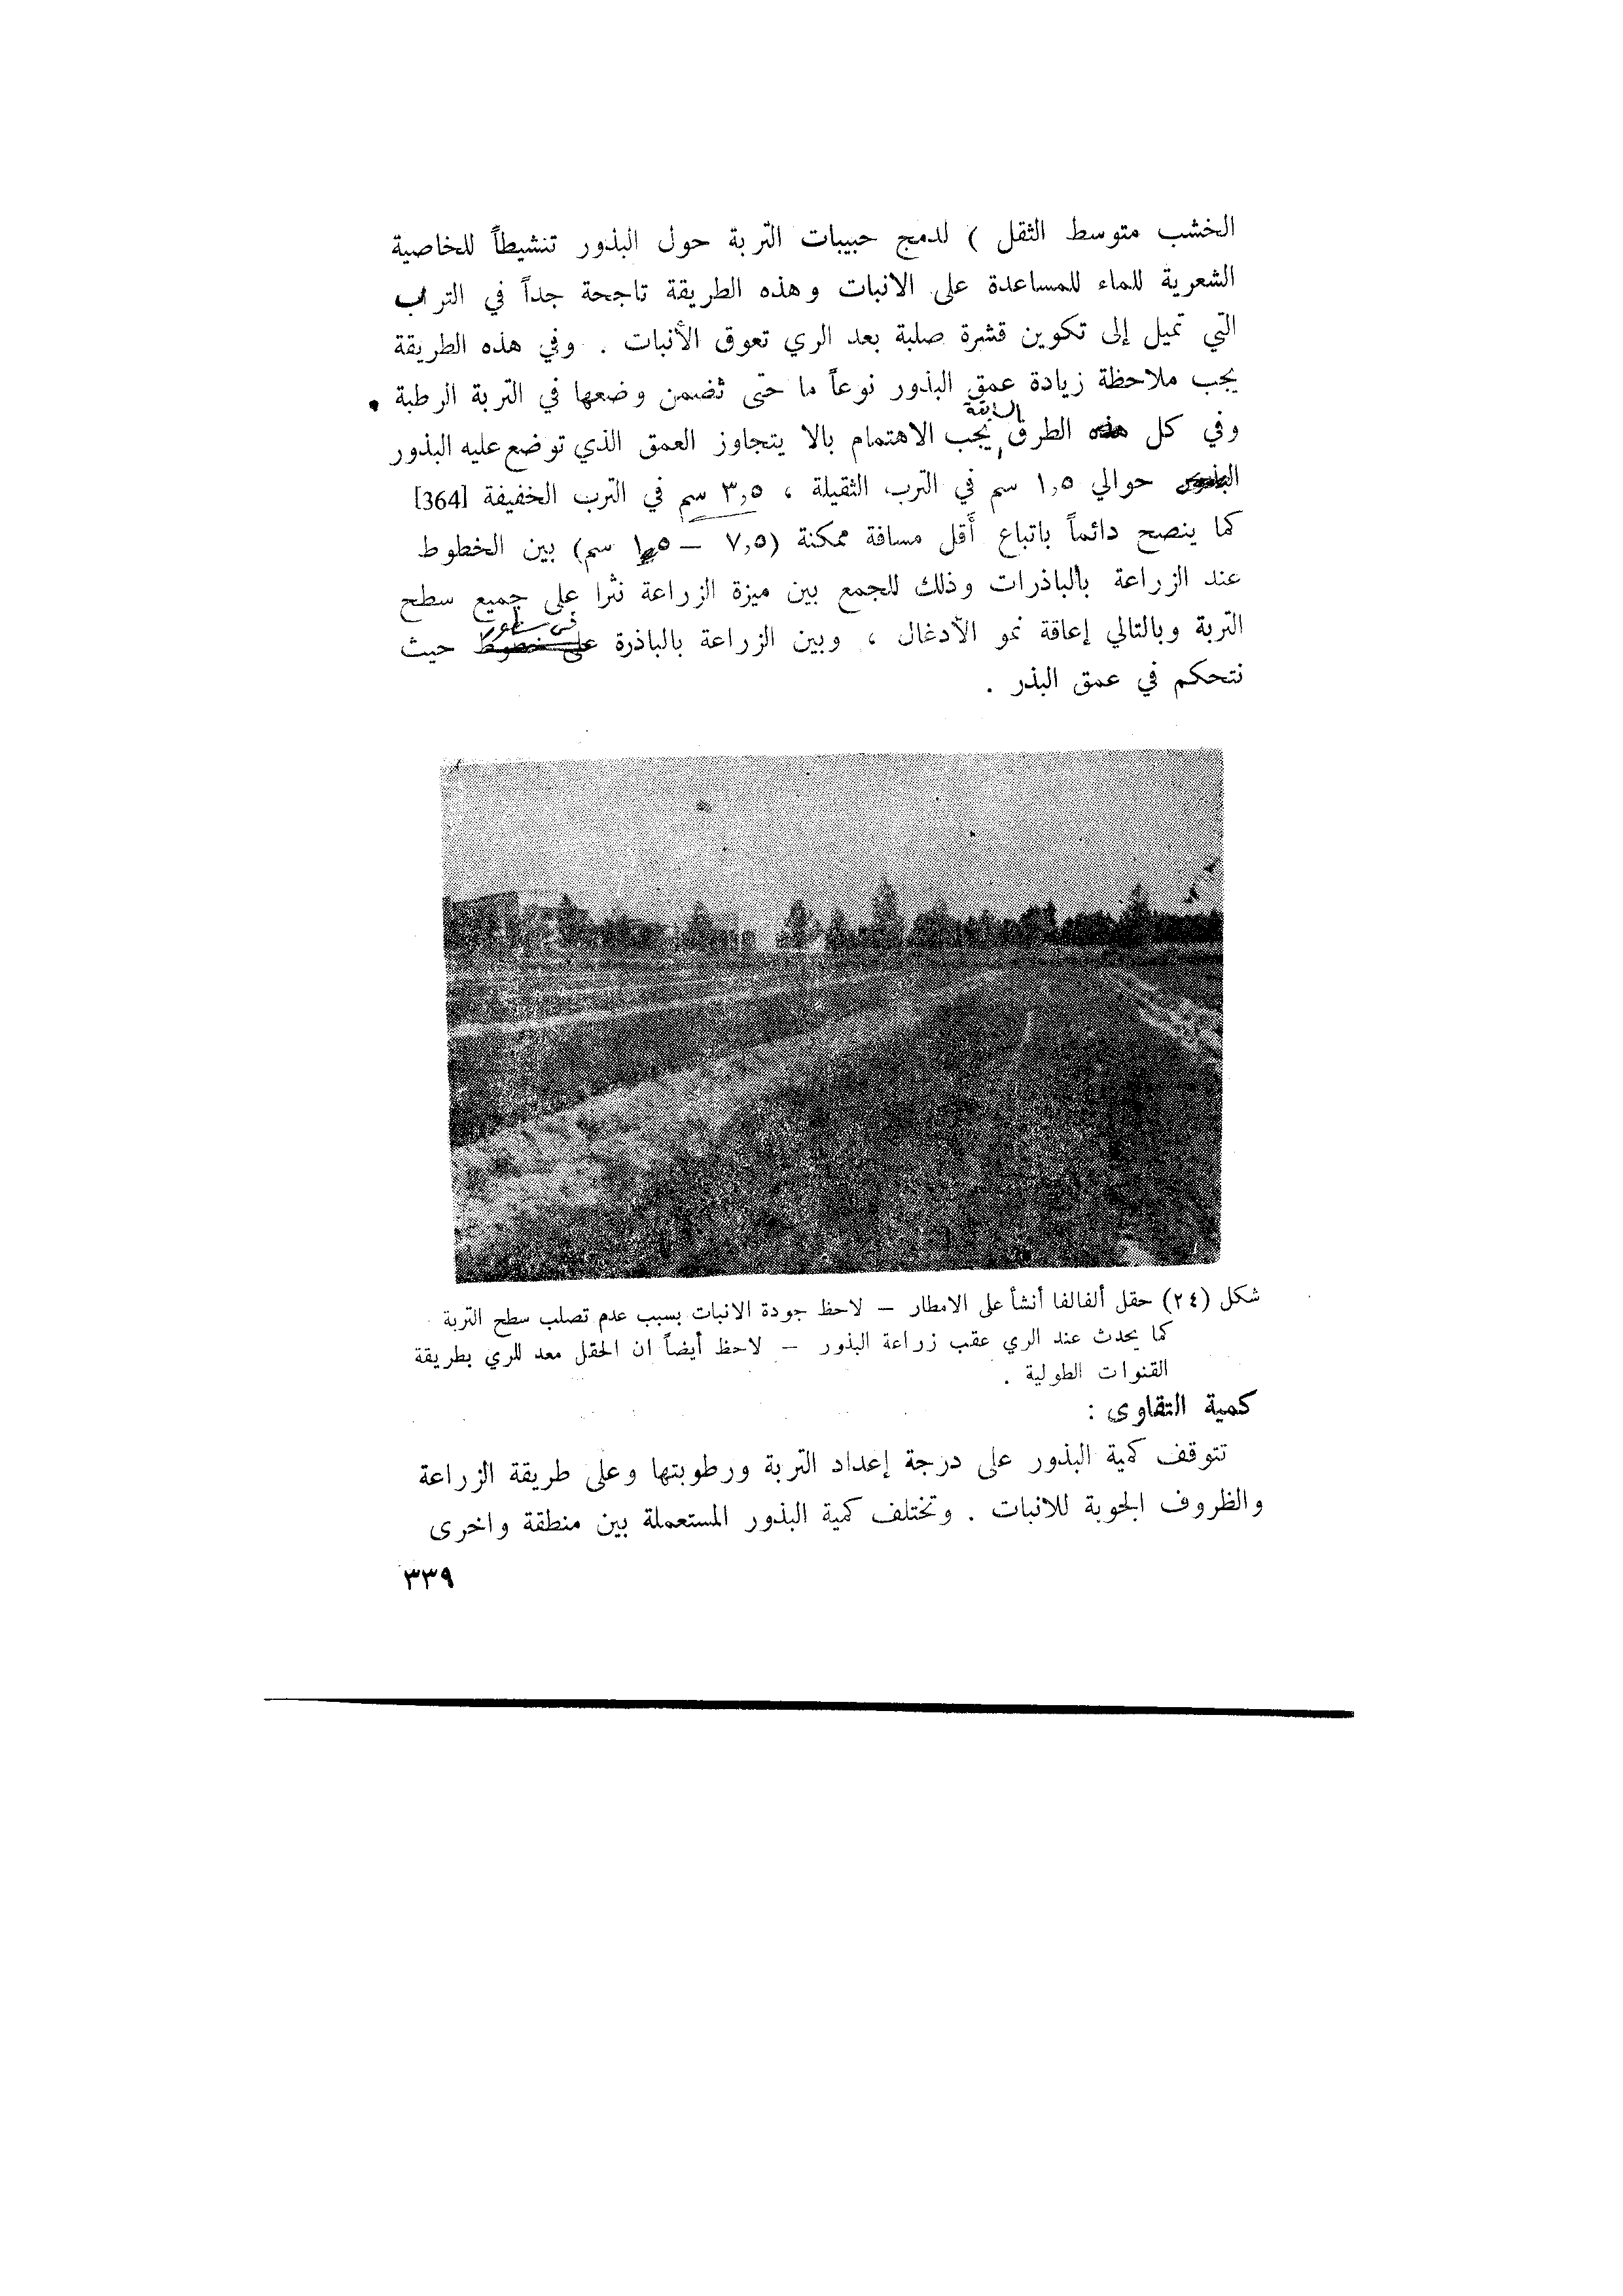 الخشب متوسط الثقل ) لدمج حبيبات التربة حول البذور تنشيطاً للخاصية
الشعرية للماء للمساعدة على الانبات وهذه الطريقة تاجحة جداً في التراب
التي تميل إلى تكوين قشرة صلبة بعد الري تعوق الأنبات . وفي هذه الطريقة
يجب ملاحظة زيادة عمق البذور نوعاً ما حتى تضمن وضعها في التربة الرطبة .
السابقة
وفي كل هذه الطرق يجب الاهتمام بالا يتجاوز العمق الذي توضع عليه البذور
حوالي ١,٥ سم في الترب الثقيلة ، ٣,٥ سم في الترب الخفيفة [364]
كما ينصح دائماً باتباع أقل مسافة ممكنة (٧,٥ – سم) بين الخطوط
عند الزراعة بالباذرات وذلك للجمع بين ميزة الزراعة نثرا على جميع سطح
في سطور
التربة وبالتالي إعاقة نمو الأدغال ، وبين الزراعة بالباذرة على خطوط حيث
نتحكم في عمق البذر .
شكل (٢٤) حقل ألفالفا أنشأ على الامطار – لاحظ جودة الانبات بسبب عدم تصلب سطح التربة
كما يحدث عند الري عقب زراعة البذور – لاحظ أيضاً ان الحقل معد للري بطريقة
القنوات الطولية .
كمية التقاوى :
تتوقف كمية البذور على درجة إعداد التربة ورطوبتها وعلى طريقة الزراعة
والظروف الجوية للانبات . وتختلف كمية البذور المستعملة بين منطقة واخرى
٣٣٩